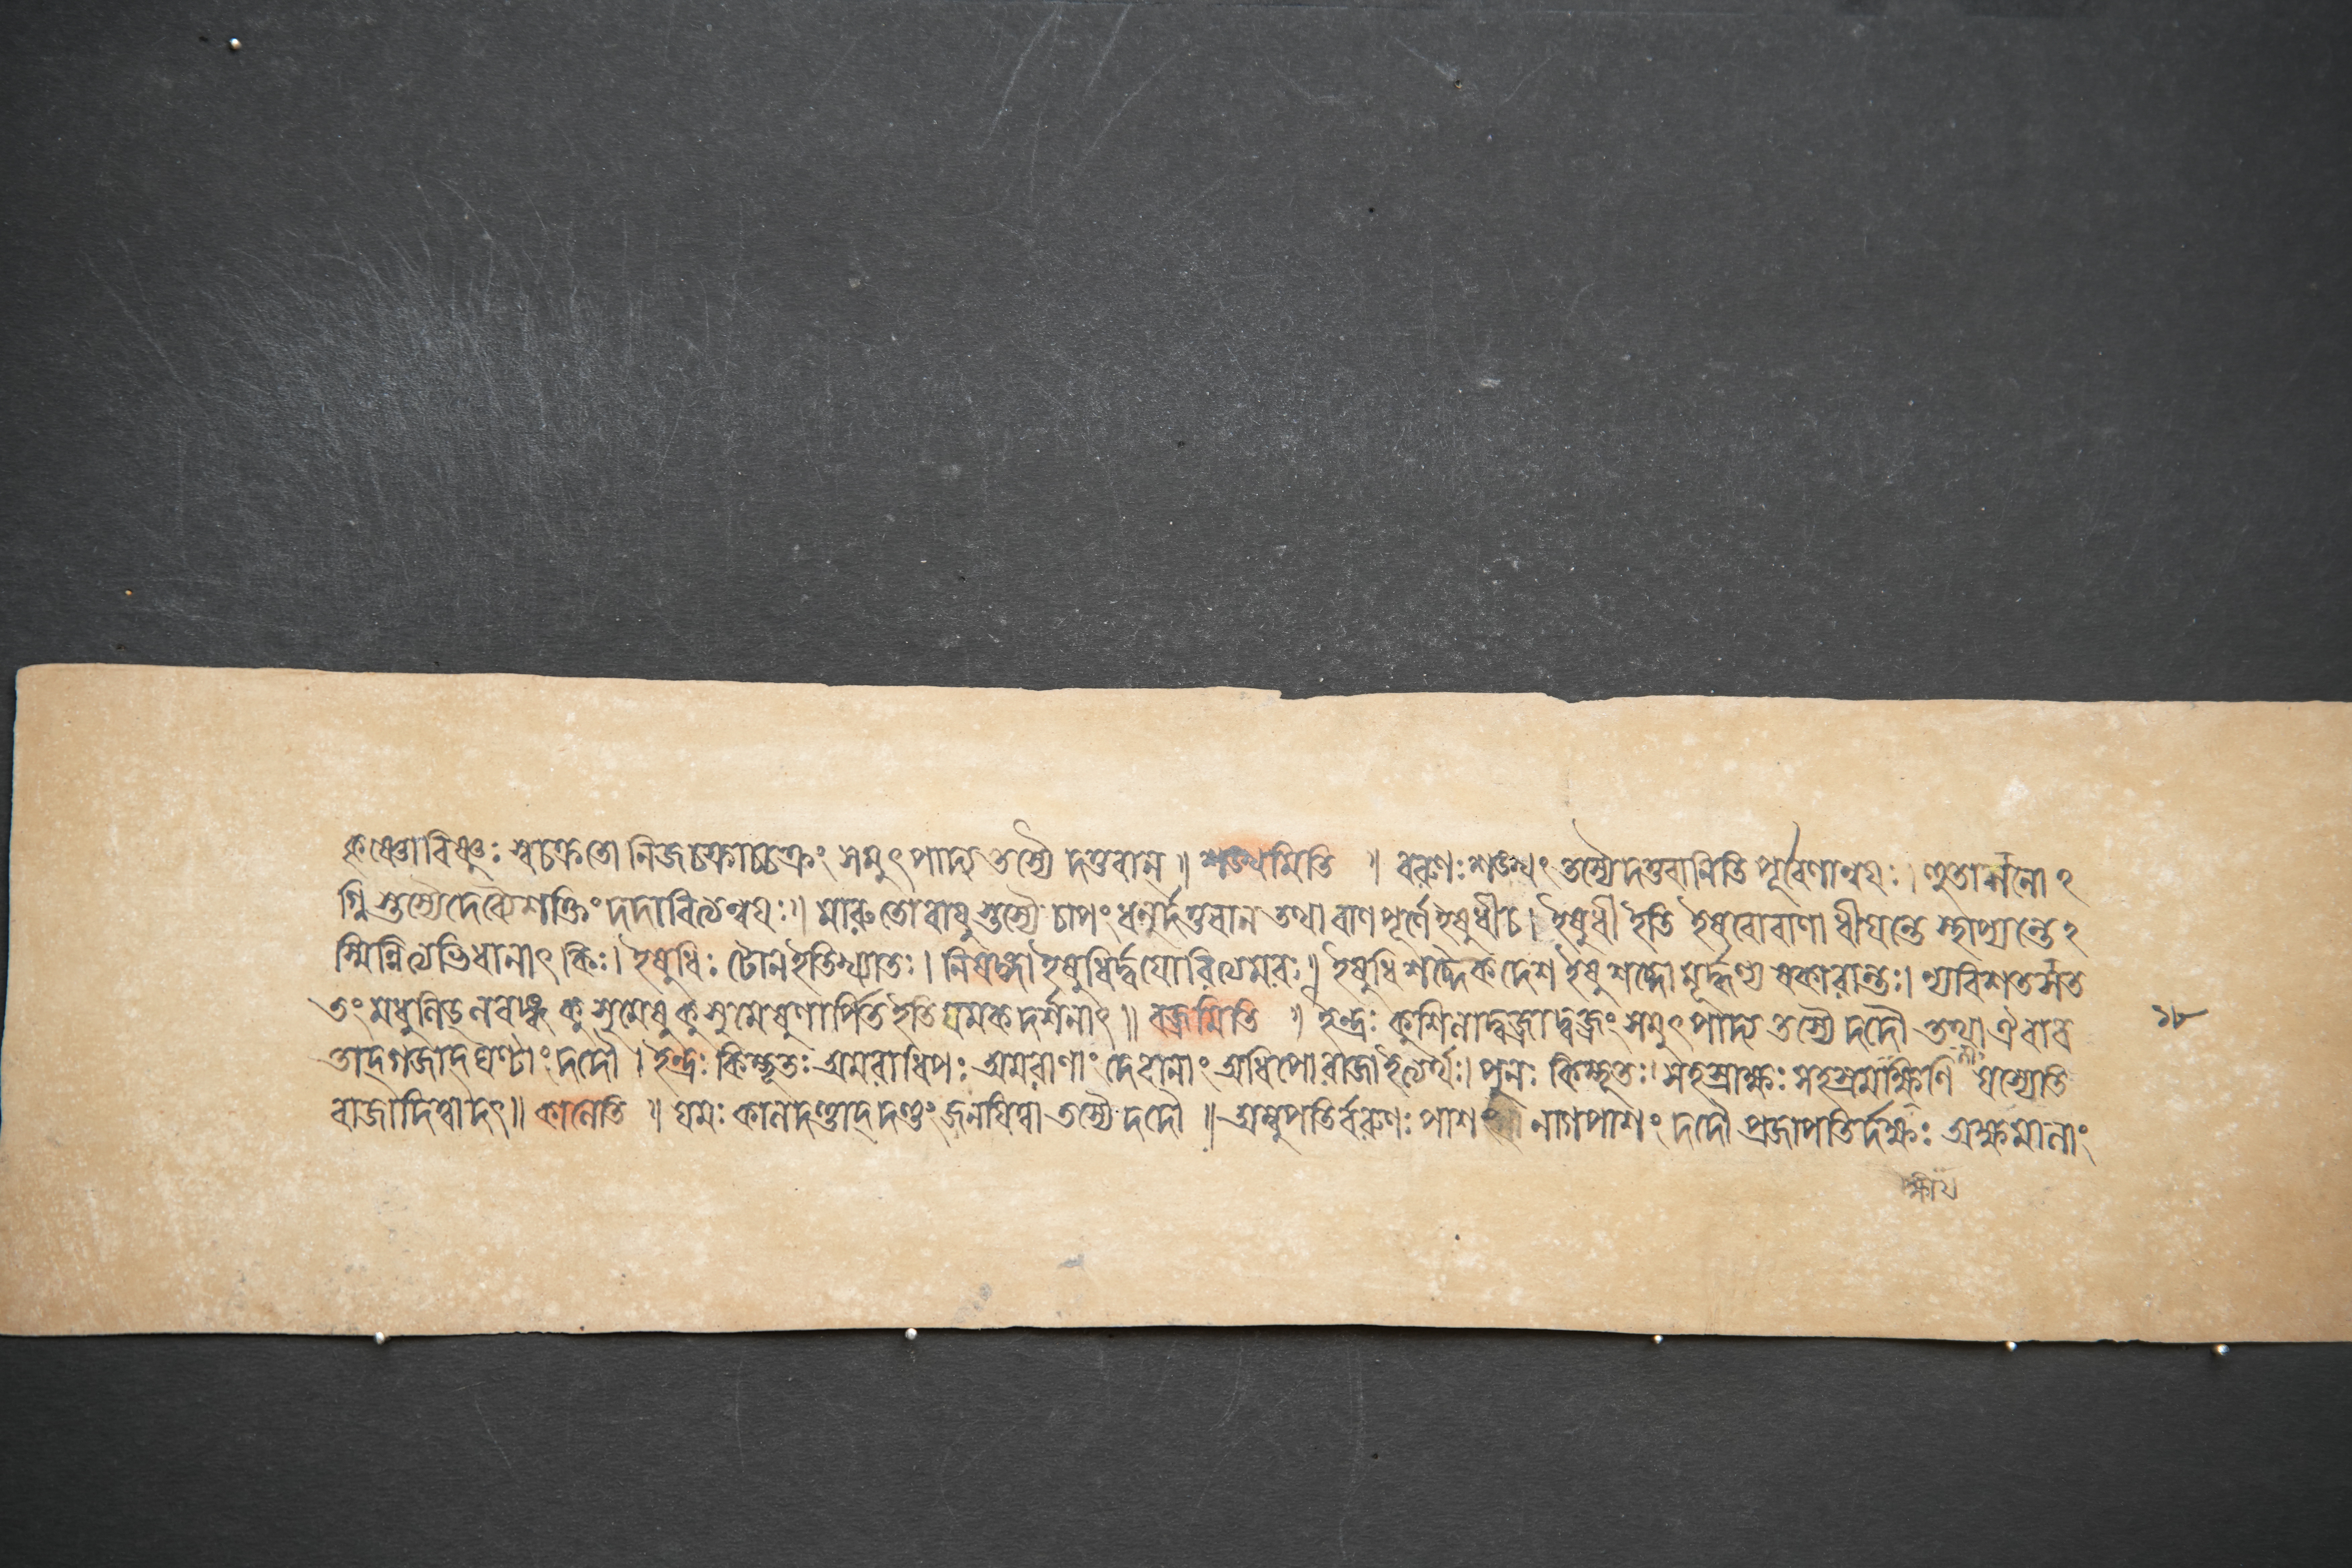 কৃষ্ণোবিষ্ণুঃ স্বচক্রতো নিজচক্রাচ্চক্রং সমুৎপাদ্য তস্যৈ দত্তবান্ ॥ শঙ্খমিতি ॥ বরুণঃ শঙ্খং তস্যৈদত্তবানিতি পূর্বেণান্বয়ঃ । হুতাশনো২
গ্নিস্তস্যৈদেব্যৈশক্তিং দদাবিত্যন্বয়ঃ ॥ মারুতোবায়ুস্তস্যৈ চাপং ধনুর্দত্তবান তথা বাণপূর্ণে ইষুধীচ । ইষুধী ইতি ইষবোবাণা ধীয়ন্তে স্থাপ্যন্তে২
স্মিন্নিত্যভিধানাৎ কিঃ । ইষুধিঃ টোনইতিখ্যাতঃ । নিষঙ্গো ইষুধির্দ্বয়োরিত্যমরঃ ॥ ইষুধিশব্দৈকদেশ ইষুশব্দো মূর্দ্ধণ্য ষকারান্তঃ । ন্যবিশতসতত
তং মধুনিড্নবান্ধু কুসুমেষুকুসুমেষুণার্পিত ইতি যমকদর্শনাৎ ॥ বজ্রমিতি ॥ ইন্দ্রঃ কুলিশাদ্বজ্রাদ্বজ্রং সমুৎপাদ্য তস্যৈ দদৌ তথা ঐরাব
তাদ্গজাদ্ঘণ্টাং দদৌ । ইন্দ্রঃ কিম্ভূতঃ অমরাধিপঃ অমরাণাং দেবানাং অধিপোরাজা ইত্যর্থঃ । পুনঃ কিম্ভূতঃ । সহস্রাক্ষঃ সহস্রমক্ষিণি যস্যেতি
রাজাদিত্বাদৎ ॥ কালেতি ॥ যমঃ কালদণ্ডাদ্দণ্ডং জনয়িত্বা তস্যৈ দদৌ ॥ অম্বুপতির্বরুণঃ পাশং নাগপাশং দদৌ প্রজাপতির্দক্ষঃ অক্ষমালাং
১৮